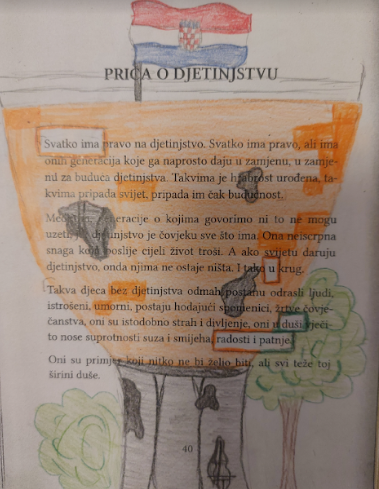 PRIČA O DJETINJSTVU
Svatko ima pravo na djetinjstvo. Svatko ima pravo, ali ima
onih generacija koje ga naprosto daju u zamjenu, u zamje-
nu za buduća djetinjstva. Takvima je hrabrost urođena, ta-
kvima pripada svijet, pripada im čak budućnost.
generacije o kojima govorimo ni to ne mogu
uzeti, jer djetinjstvo je čovjeku sve što ima. Ona neiscrpna
snaga koju poslije cijeli život troši. A ako svijetu daruju
djetinjstvo, onda njima ne ostaje ništa. I tako u krug.
Takva djeca bez djetinjstva odmah postanu odrasli ljudi,
istrošeni, umorni, postaju hodajući spomenici, žrtve čovje-
čanstva, oni su istodobno strah i divljenje, oni u duši vječi-
to nose suprotnosti suza i smijeha, radosti i patnje.
Oni su primjer koji nitko ne bi želio biti, ali svi teže toj
širini duše.
40